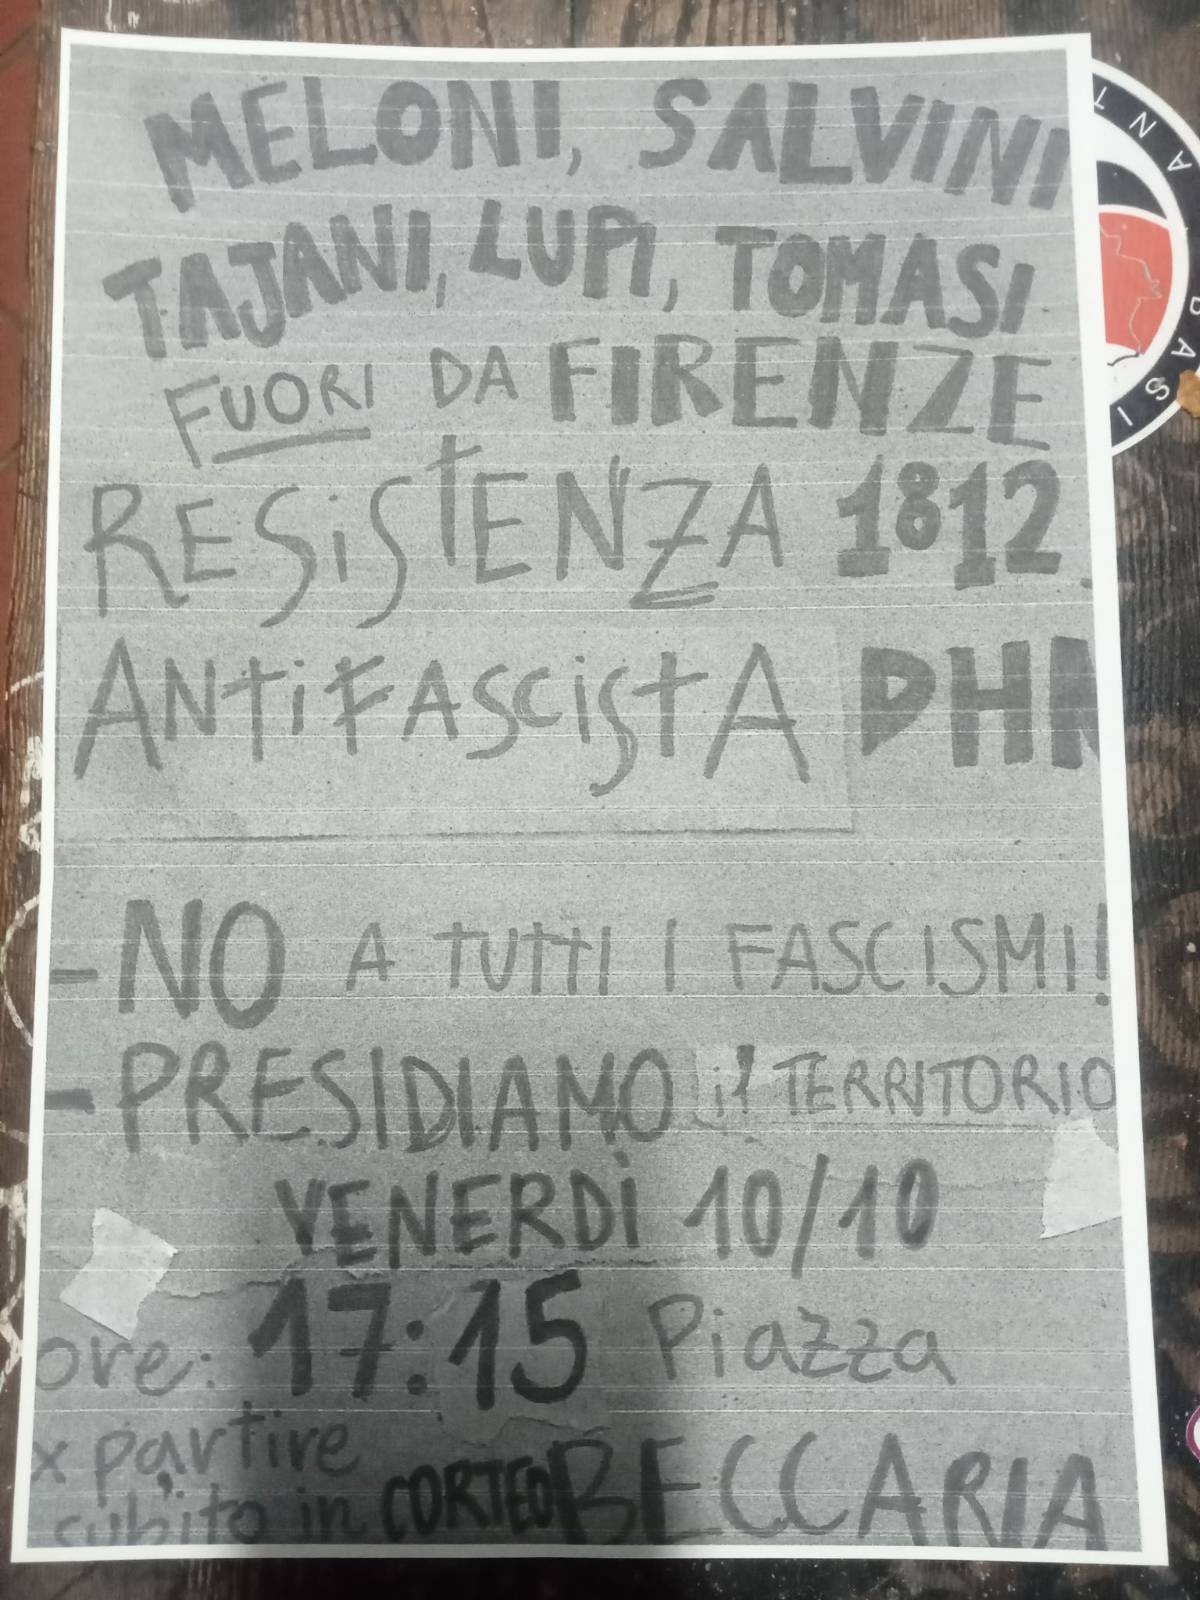 MELONI, SALVINI
TAJANI, LUPI, TOMASI
FUORI DA FIRENZE
RESiStENZA 1812
ANtiFAscistA DHN
-NO A TUTTI I FASCISMI!
-PRESIDIAMO il TERRITORIO
VENERDÌ 10/10
ore: 17:15 Piazza
x partire
subito in CORTEO BECCARIA